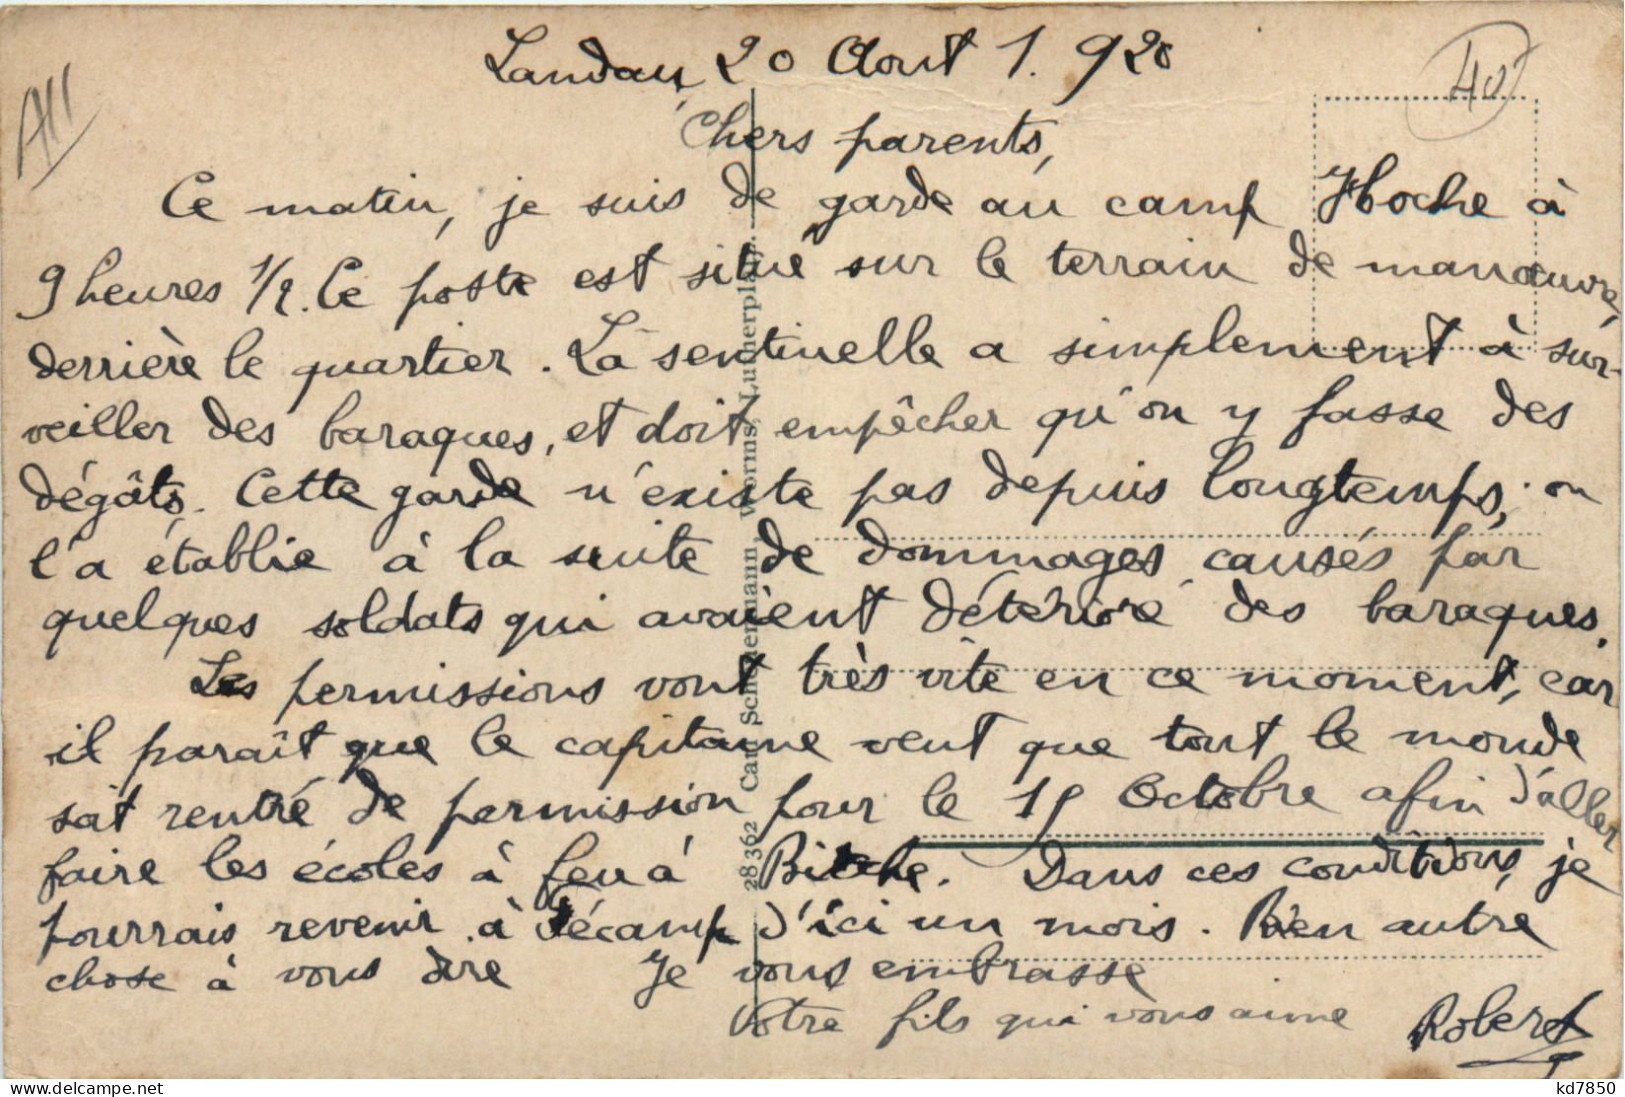 Landau 20 Aout 1.920
40
A11
Chers parents,
Ce matin, je suis de garde au camp Hoche à
9 heures 1/2. Ce poste est situé sur le terrain de manœuvre,
derrière le quartier. La sentinelle a simplement à sur-
veiller des baraques, et doit empêcher qu'on y fasse des
dégâts. Cette garde n'existe pas depuis longtemps, on
l'a établie à la suite de dommages causés par
quelques soldats qui avaient détérioré des baraques.
Les permissions vont très vite en ce moment, car
il paraît que le capitaine veut que tout le monde
soit rentré de permission pour le 15 Octobre afin d'aller
faire les écoles à feu à Bitche. Dans ces conditions, je
pourrais revenir à Fécamp d'ici un mois. Rien autre
chose à vous dire Je vous embrasse
Votre fils qui vous aime Robert
28362 Worms, Lutherplatz.
delcampe.net
kd7850